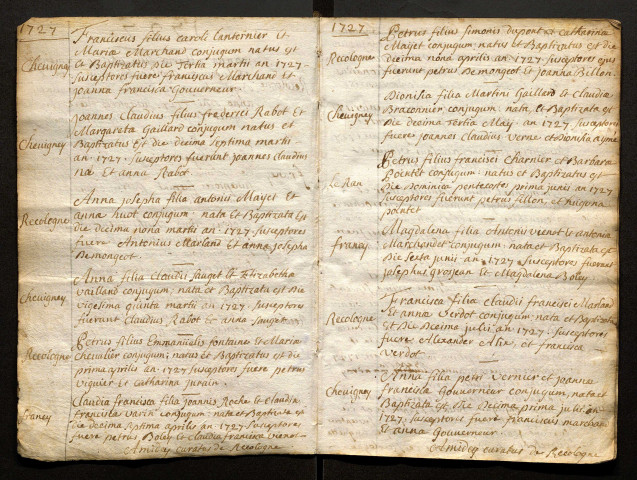 1727
Franciscus filius caroli Lanternier et
Mariæ Marchand conjugum natus est
Chevigney
& Baptizatus die Tertia martii an 1727.
Susceptores fuere franciscus Marchand et
joanna francisca Gouverneur.
joannes Claudius filius frederici Rabot Et
Margareta Gaillard conjugum natus et
Chevigney
Baptizatus Est die decima septima martii
an 1727. Susceptores fuerunt joannes claudius
et anna Rabot
Anna josepha filia antonii Mayet Et
anna huot conjugum. nata Et Baptizata est
Recologne
die decima nona martii an. 1727. Susceptores
fuere Antonius Marland Et anna josepha
Demongeot.
Anna filia Claudii sauget & Elizabetha
vailland conjugum, nata et Baptizata est die
Chevigney
vigesima quinta martii an 1727. Susceptores
fuerunt Claudius Rabot Et anna Sauget.
Petrus filius Emmanuelis fontaine Et Maria
Chevalier conjugum; natus et Baptizatus est die
Recologne
prima aprilis an 1727 Susceptores fuere petrus
viguier et catharina jurain.
Claudia francisca filia joannis Roche et claudia
francisca varin conjugum. nata et Baptizata est
franey
die decima septima aprilis an. 1727. Susceptores
fuere petrus Boley et claudia francisca vienot
Amidey curatus de Recologne
1727
Petrus filius simonis dupont et catharina
Mayet conjugum. natus et Baptizatus est die
Recologne
decima nona aprilis an 1727. Susceptores ejus
fuerunt petrus Demongeot et joanna Billon.
Dionisia filia Martini Gaillard & claudia
Braconnier conjugum nata & Baptizata est
Chevigney
die decima Tertia Maij an 1727 Susceptores
fuere joannes claudius verne et Dionisia ayme
Petrus filius francisci Charnier et Barbara
Pointet conjugum. natus et Baptizatus est
Le Ran
die dominica pentecostes prima junii an 1727
Susceptores fuerunt petrus fillon, et hugona
pointet
Magdalena filia Antonii vienot & antonia
Marchandet conjugum. nata et Baptizata est
franey
Die sexta junii an 1727. Susceptores fuerunt
josephus grosjean et Magdalena Boley.
Francisca filia claudii francisci Marland
Et anna verdot conjugum nata et Baptizata
Recologne
est Die Decima julii an 1727. Susceptores
fuere Alexander Alix, et francisca
verdot.
Anna filia petri vernier et joanna
francisca Gouverneur conjugum, nata et
Chevigney
Baptizata est die decima prima julii an
1727. Susceptores fuere franciscus marchand
Et anna Gouverneur.
Amidey curatus de Recologne